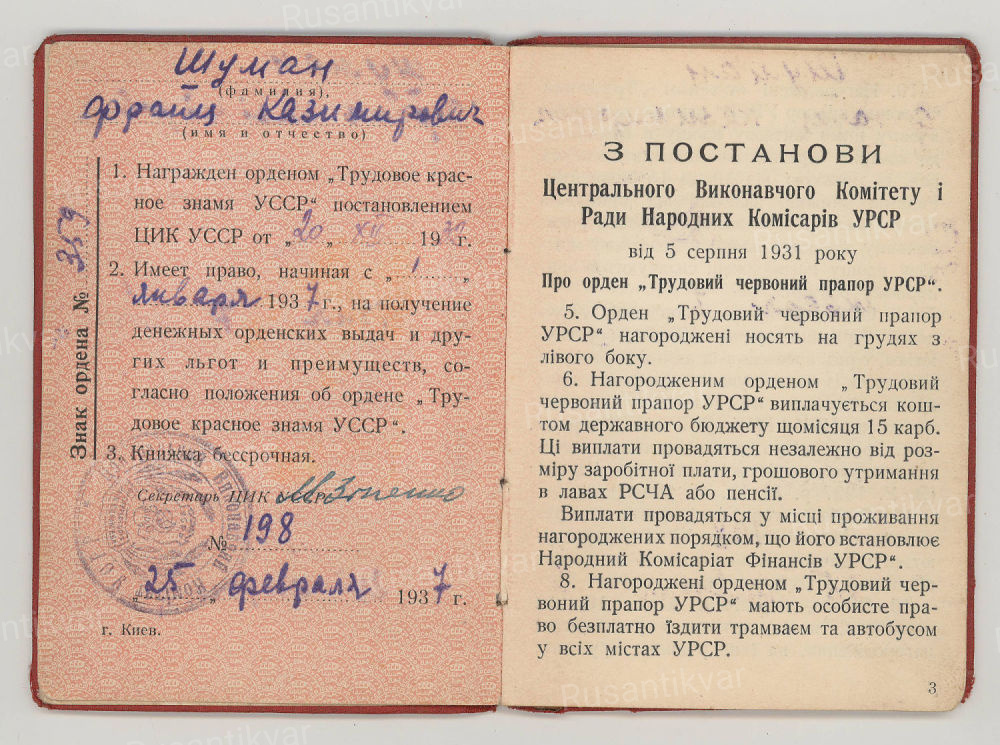 Шуман
(фамилия),
Франц Казимирович
(имя и отчество)
Знак ордена № 359
1. Награжден орденом „Трудовое крас-
ное знамя УССР“ постановлением
ЦИК УССР от „20„ XII 19 г.
2. Имеет право, начиная с „1 „
января 1937 г., на получение
денежных орденских выдач и дру-
гих льгот и преимуществ, со-
гласно положения об ордене „Тру-
довое красное знамя УССР“.
3. Книжка бессрочная.
Секретарь ЦИК
№ 198
„25„ февраля 1937 г.
г. Киев.
З ПОСТАНОВИ
Центрального Виконавчого Комітету і
Ради Народних Комісарів УРСР
від 5 серпня 1931 року
Про орден „Трудовий червоний прапор УРСР“.
5. Орден „Трудовий червоний прапор
УРСР“ нагороджені носять на грудях з
лівого боку.
6. Нагородженим орденом „Трудовий
червоний прапор УРСР“ виплачується кош-
том державного бюджету щомісяця 15 карб.
Ці виплати провадяться незалежно від роз-
міру заробітної плати, грошового утримання
в лавах РСЧА або пенсії.
Виплати провадяться у місці проживання
нагороджених порядком, що його встановлює
Народний Комісаріат Фінансів УРСР“.
8. Нагороджені орденом „Трудовий чер-
воний прапор УРСР“ мають особисте пра-
во безплатно їздити трамваєм та автобусом
у всіх містах УРСР.
3
Rusantikvar